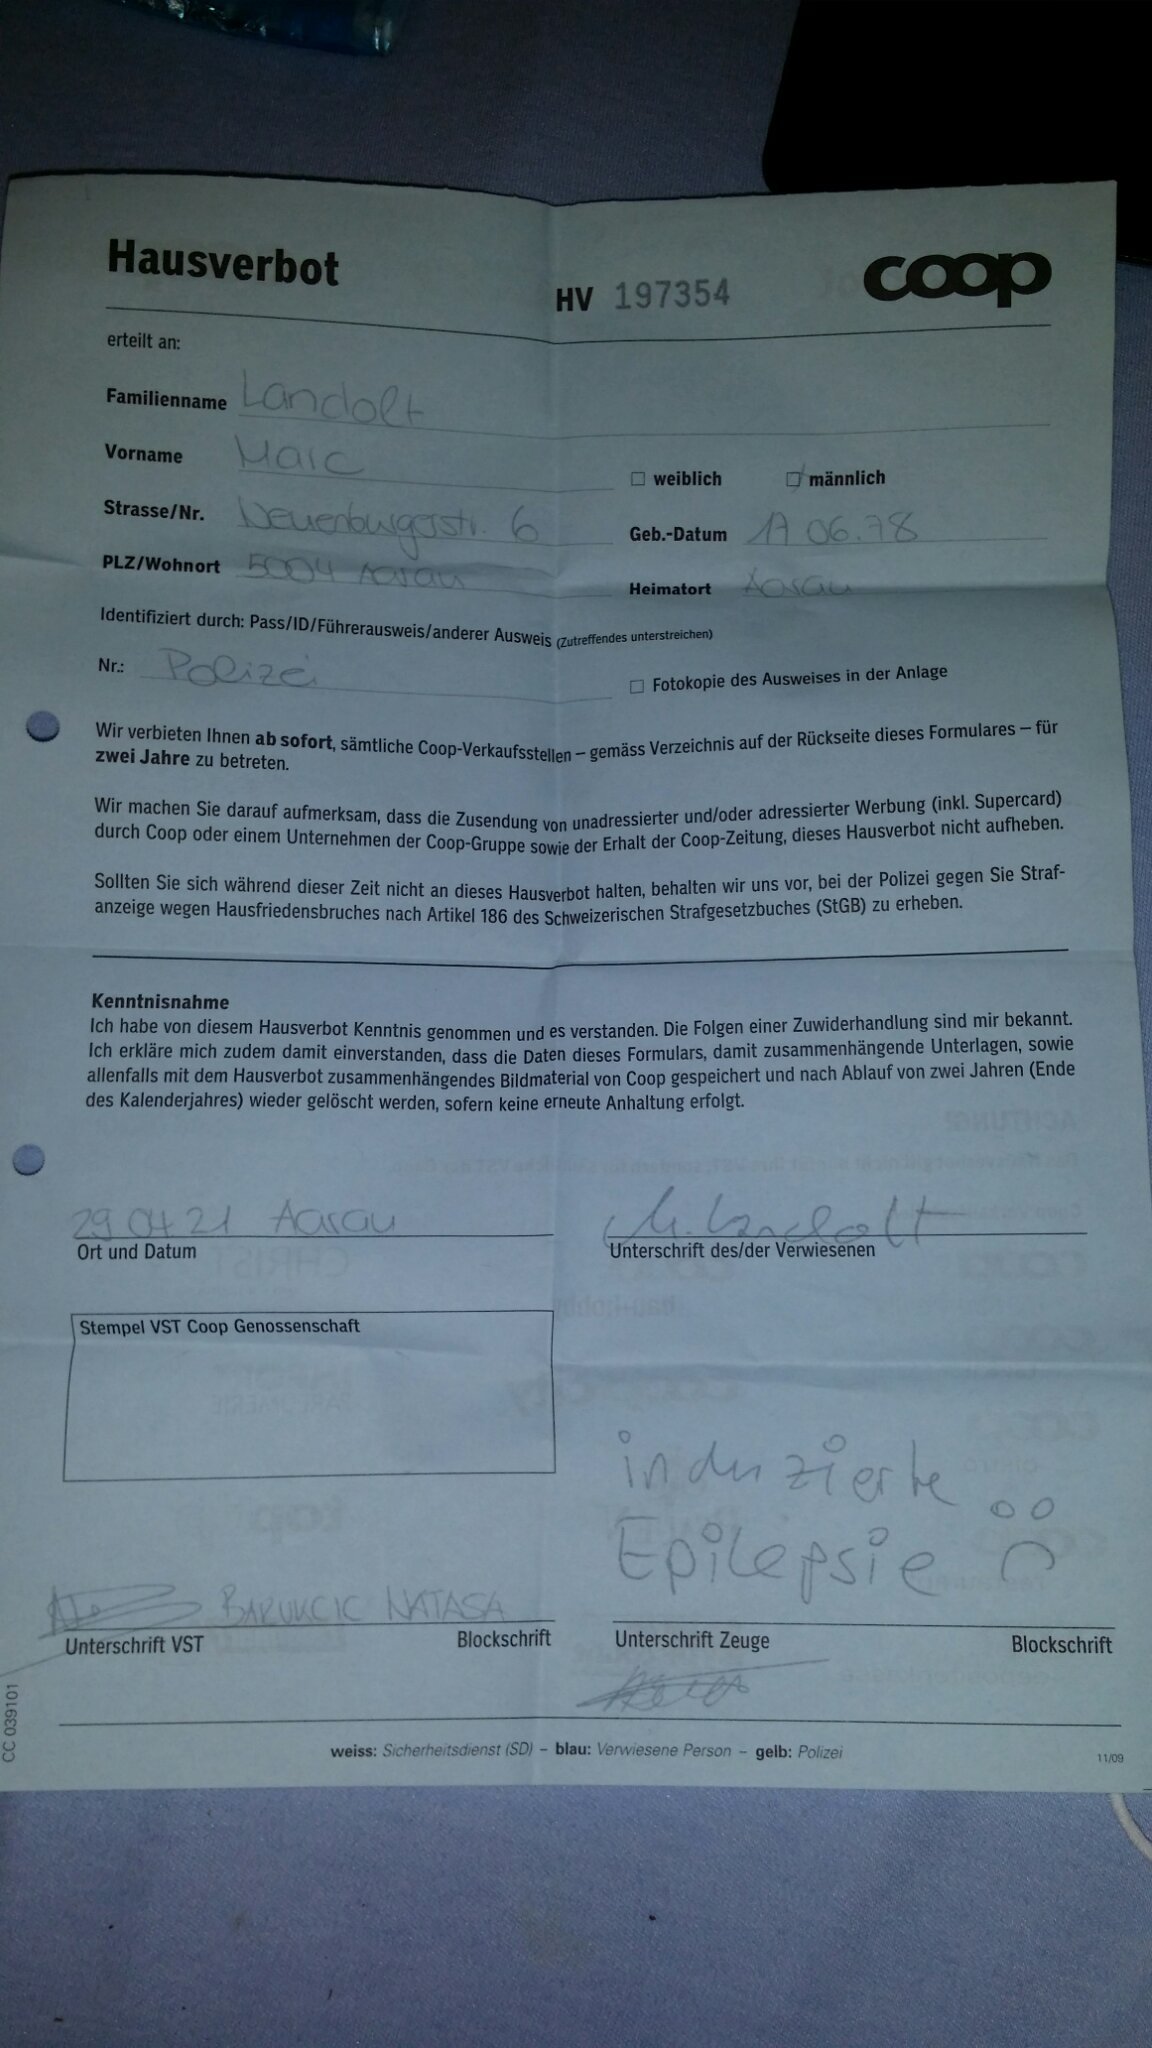 Hausverbot
HV 197354
coop
erteilt an:
Familienname Landolt
Vorname Marc
weiblich männlich
Strasse/Nr. Neuenburgerstr. 6
Geb.-Datum 17 06.78
PLZ/Wohnort 5004 Aarau
Heimatort Aarau
Identifiziert durch: Pass/ID/Führerausweis/anderer Ausweis (Zutreffendes unterstreichen)
Nr.: Polizei
Fotokopie des Ausweises in der Anlage
Wir verbieten Ihnen ab sofort, sämtliche Coop-Verkaufsstellen – gemäss Verzeichnis auf der Rückseite dieses Formulares – für
zwei Jahre zu betreten.
Wir machen Sie darauf aufmerksam, dass die Zusendung von unadressierter und/oder adressierter Werbung (inkl. Supercard)
durch Coop oder einem Unternehmen der Coop-Gruppe sowie der Erhalt der Coop-Zeitung, dieses Hausverbot nicht aufheben.
Sollten Sie sich während dieser Zeit nicht an dieses Hausverbot halten, behalten wir uns vor, bei der Polizei gegen Sie Straf-
anzeige wegen Hausfriedensbruches nach Artikel 186 des Schweizerischen Strafgesetzbuches (StGB) zu erheben.
Kenntnisnahme
Ich habe von diesem Hausverbot Kenntnis genommen und es verstanden. Die Folgen einer Zuwiderhandlung sind mir bekannt.
Ich erkläre mich zudem damit einverstanden, dass die Daten dieses Formulars, damit zusammenhängende Unterlagen, sowie
allenfalls mit dem Hausverbot zusammenhängendes Bildmaterial von Coop gespeichert und nach Ablauf von zwei Jahren (Ende
des Kalenderjahres) wieder gelöscht werden, sofern keine erneute Anhaltung erfolgt.
29 04 21 Aarau
M. Landolt
Ort und Datum
Unterschrift des/der Verwiesenen
Stempel VST Coop Genossenschaft
induzierte
Epilepsie
BARUKCIC NATASA
Unterschrift VST Blockschrift
Unterschrift Zeuge Blockschrift
CC 039101
weiss: Sicherheitsdienst (SD) – blau: Verwiesene Person – gelb: Polizei
11/09